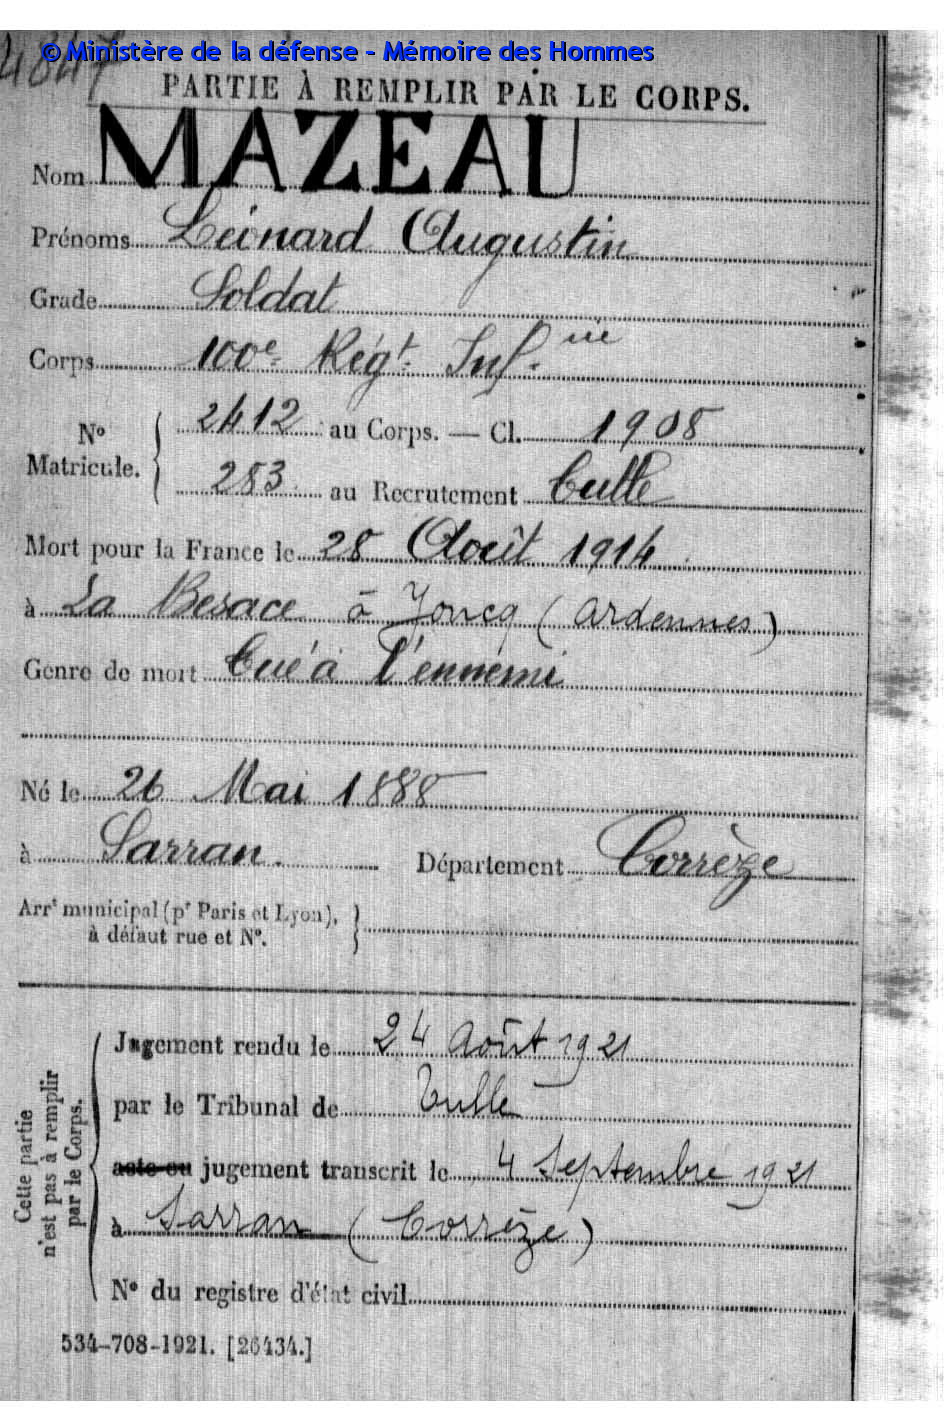 4847
© Ministère de la défense - Mémoire des Hommes
PARTIE À REMPLIR PAR LE CORPS.
Nom MAZEAU
Prénoms Léonard Augustin
Grade Soldat
Corps 100e Régt Inf.rie
No Matricule. { 2412 au Corps. — Cl. 1908
283 au Recrutement Tulle
Mort pour la France le 28 Août 1914
à La Besace à Yoncq (Ardennes)
Genre de mort Tué à l'ennemi
Né le 26 Mai 1888
à Sarran. Département Corrèze
Arrt municipal (pr Paris et Lyon),
à défaut rue et No. }
Cette partie
n'est pas à remplir
par le Corps.
Jugement rendu le 24 Août 1921
par le Tribunal de Tulle
acte ou jugement transcrit le 4 Septembre 1921
à Sarran (Corrèze)
No du registre d'état civil
534-708-1921. [26434.]